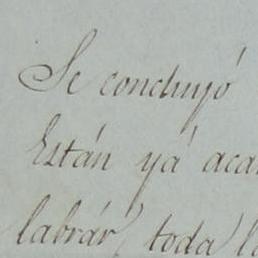 Se conclujó
Están yá aca
labrár toda l